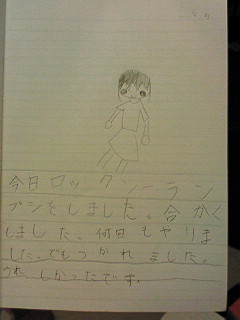 今日ロックソーラン
ブシをしました。合かく
しました。何回もやりま
した。でもつかれました。
うれしかったです。